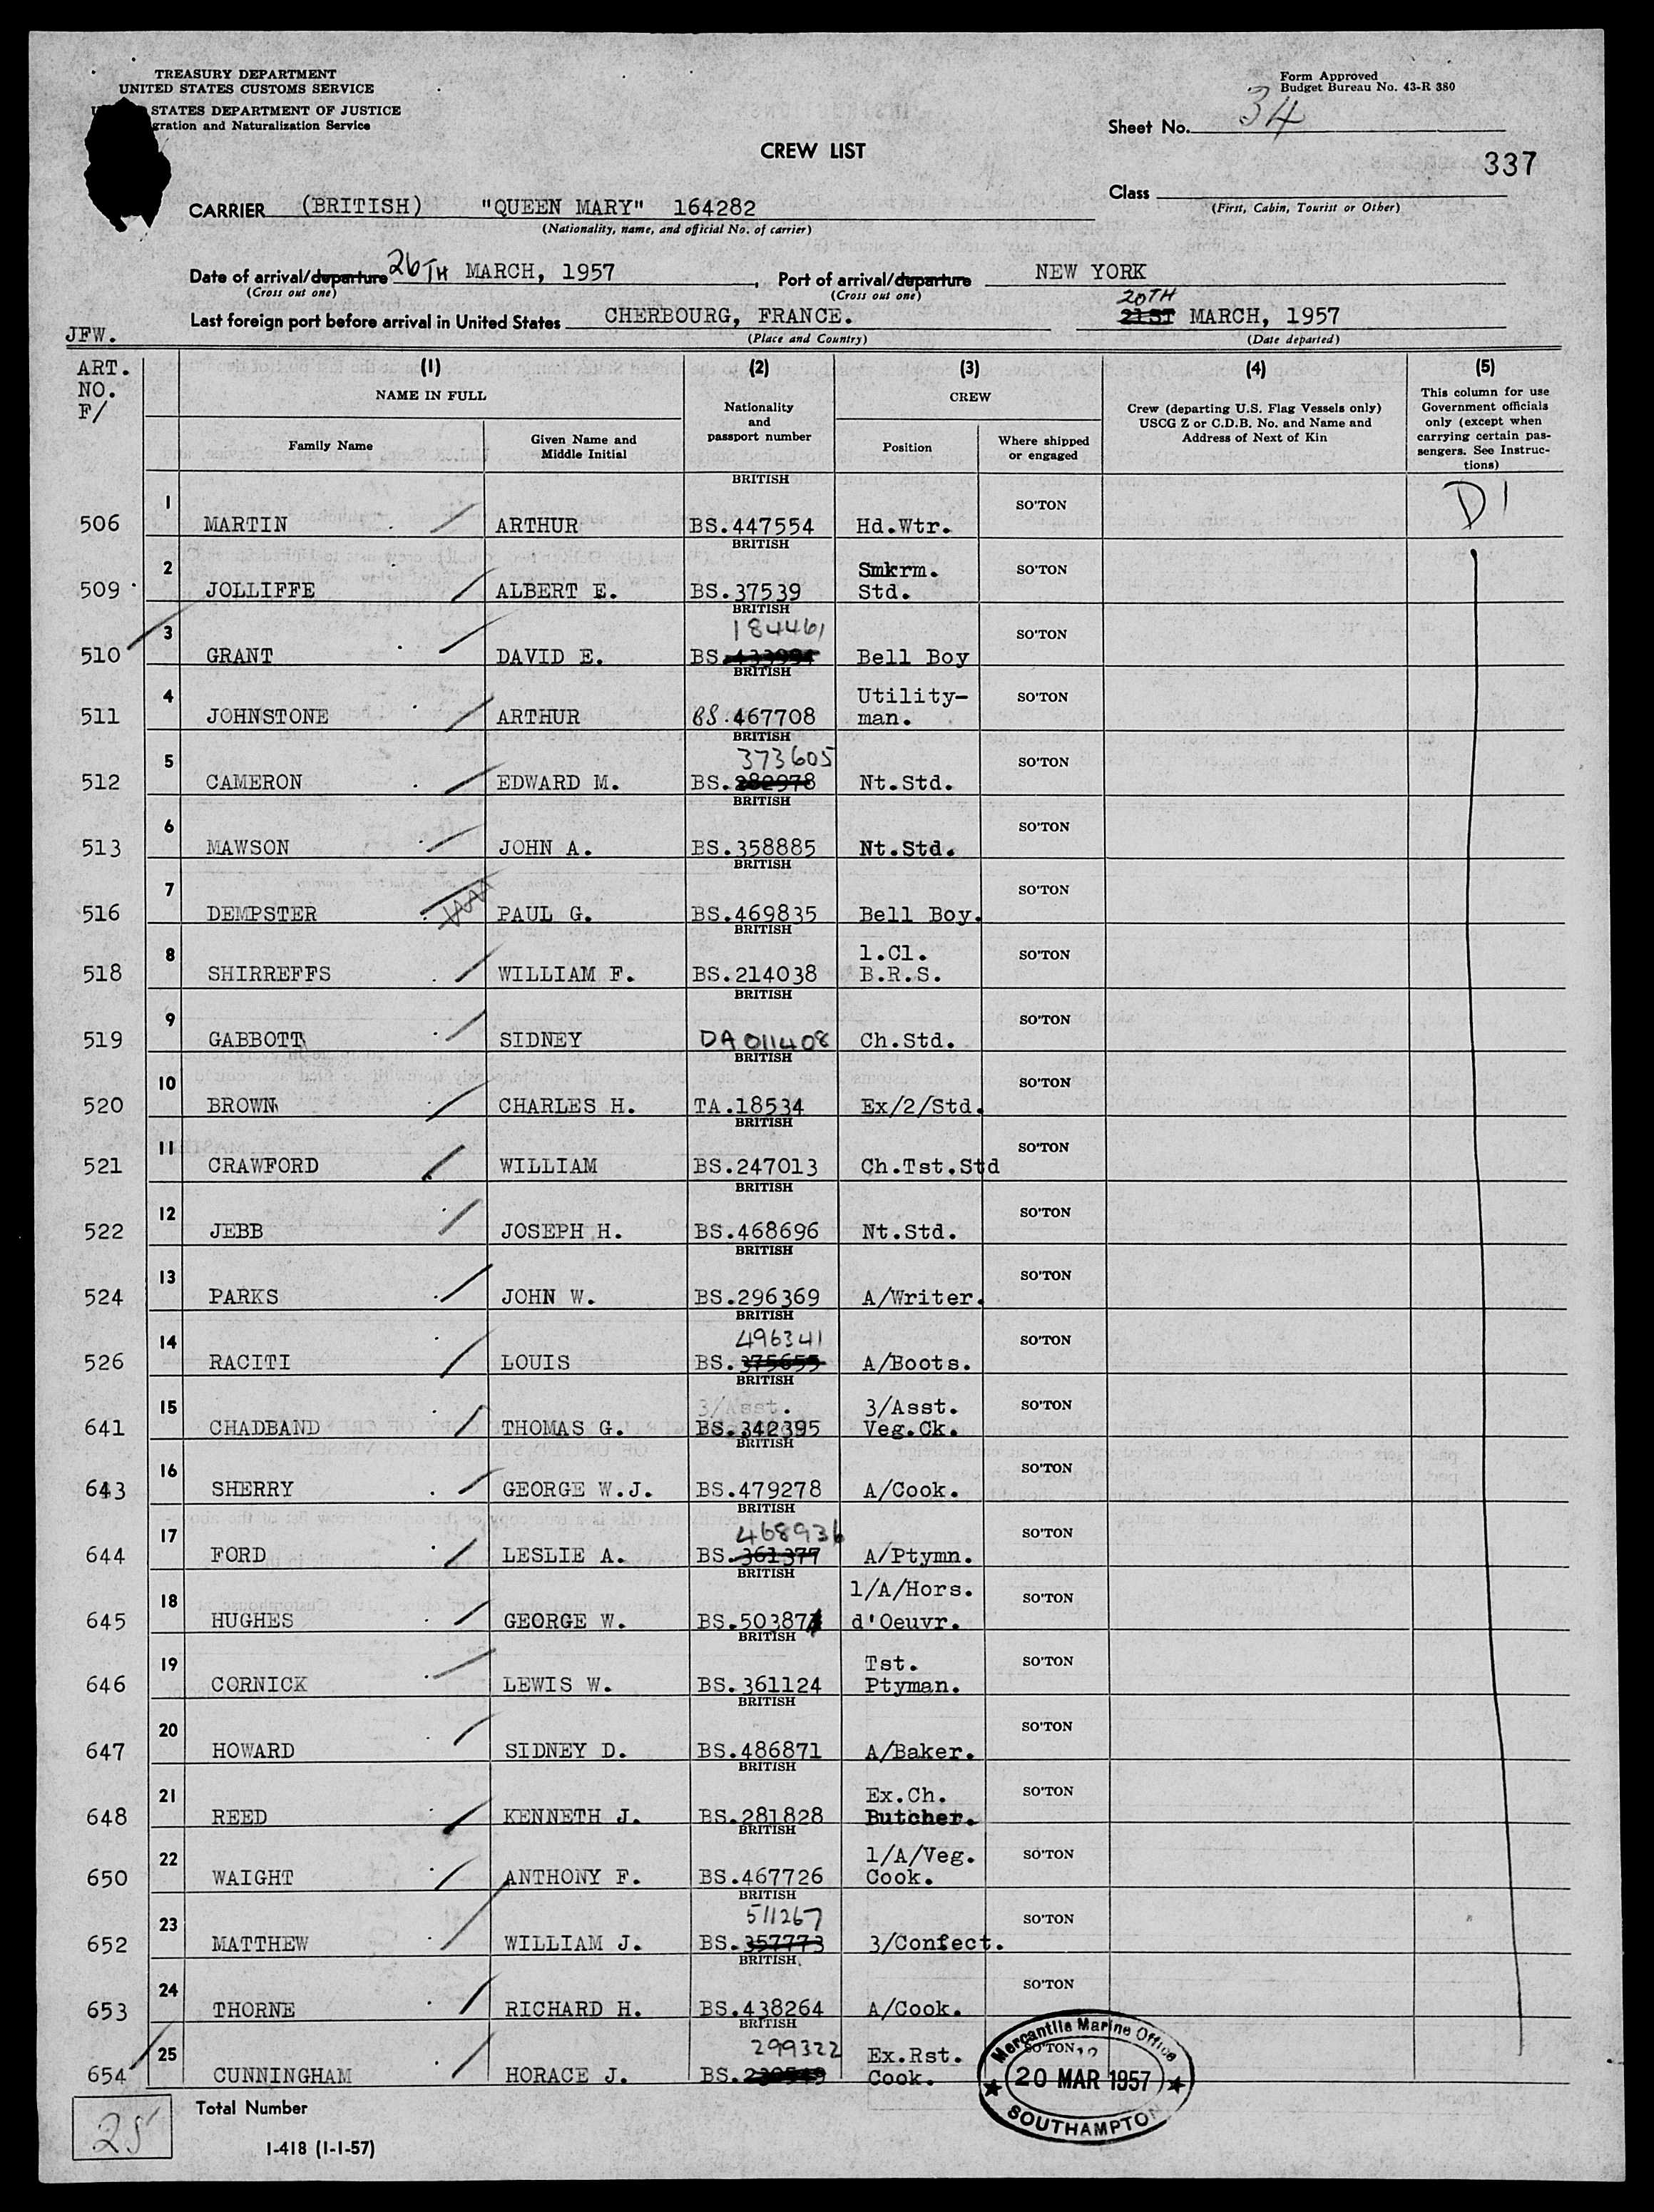 TREASURY DEPARTMENT
UNITED STATES CUSTOMS SERVICE
STATES DEPARTMENT OF JUSTICE
gration and Naturalization Service
Form Approved
Budget Bureau No. 43-R 380
Sheet No. 34
CREW LIST
337
Class
(First, Cabin, Tourist or Other)
CARRIER (BRITISH) "QUEEN MARY" 164282
(Nationality, name, and official No. of carrier)
Date of arrival/departure 26TH MARCH, 1957, Port of arrival/departure NEW YORK
(Cross out one) (Cross out one)
20TH
Last foreign port before arrival in United States CHERBOURG, FRANCE. 21ST MARCH, 1957
(Place and Country) (Date departed)
JFW.
ART.
NO.
F/
(1) (2) (3) (4) (5)
NAME IN FULL
Family Name
Given Name and
Middle Initial
Nationality
and
passport number
CREW
Position
Where shipped
or engaged
Crew (departing U.S. Flag Vessels only)
USCG Z or C.D.B. No. and Name and
Address of Next of Kin
This column for use
Government officials
only (except when
carrying certain pas-
sengers. See Instruc-
tions)
D1
BRITISH
506 1 MARTIN ARTHUR BS.447554 Hd.Wtr. SO'TON
BRITISH
Smkrm.
509 2 JOLLIFFE ALBERT E. BS.37539 Std. SO'TON
BRITISH
184461
510 3 GRANT DAVID E. BS. Bell Boy SO'TON
BRITISH
Utility-
511 4 JOHNSTONE ARTHUR BS.467708 man. SO'TON
BRITISH
373605
512 5 CAMERON EDWARD M. BS.282978 Nt.Std. SO'TON
BRITISH
513 6 MAWSON JOHN A. BS.358885 Nt.Std. SO'TON
BRITISH
516 7 DEMPSTER PAUL G. BS.469835 Bell Boy. SO'TON
BRITISH
1.Cl.
518 8 SHIRREFFS WILLIAM F. BS.214038 B.R.S. SO'TON
BRITISH
519 9 GABBOTT SIDNEY DA 011408 Ch.Std. SO'TON
BRITISH
520 10 BROWN CHARLES H. TA.18534 Ex/2/Std. SO'TON
BRITISH
521 11 CRAWFORD WILLIAM BS.247013 Ch.Tst.Std SO'TON
BRITISH
522 12 JEBB JOSEPH H. BS.468696 Nt.Std. SO'TON
BRITISH
524 13 PARKS JOHN W. BS.296369 A/Writer. SO'TON
BRITISH
496341
526 14 RACITI LOUIS BS.375655 A/Boots. SO'TON
BRITISH
3/Asst. 3/Asst.
641 15 CHADBAND THOMAS G. BS.342395 Veg.Ck. SO'TON
BRITISH
643 16 SHERRY GEORGE W.J. BS.479278 A/Cook. SO'TON
BRITISH
468936
644 17 FORD LESLIE A. BS.361377 A/Ptymn. SO'TON
BRITISH
1/A/Hors.
645 18 HUGHES GEORGE W. BS.50387 d'Oeuvr. SO'TON
BRITISH
Tst.
646 19 CORNICK LEWIS W. BS.361124 Ptyman. SO'TON
BRITISH
647 20 HOWARD SIDNEY D. BS.486871 A/Baker. SO'TON
BRITISH
Ex.Ch.
648 21 REED KENNETH J. BS.281828 Butcher. SO'TON
BRITISH
1/A/Veg.
650 22 WAIGHT ANTHONY F. BS.467726 Cook. SO'TON
BRITISH
511267
652 23 MATTHEW WILLIAM J. BS.357773 3/Confect. SO'TON
BRITISH
653 24 THORNE RICHARD H. BS.438264 A/Cook. SO'TON
BRITISH
299322 Ex.Rst.
654 25 CUNNINGHAM HORACE J. BS. Cook. SO'TON
Mercantile Marine Office
20 MAR 1957
SOUTHAMPTON
25 Total Number
I-418 (1-1-57)